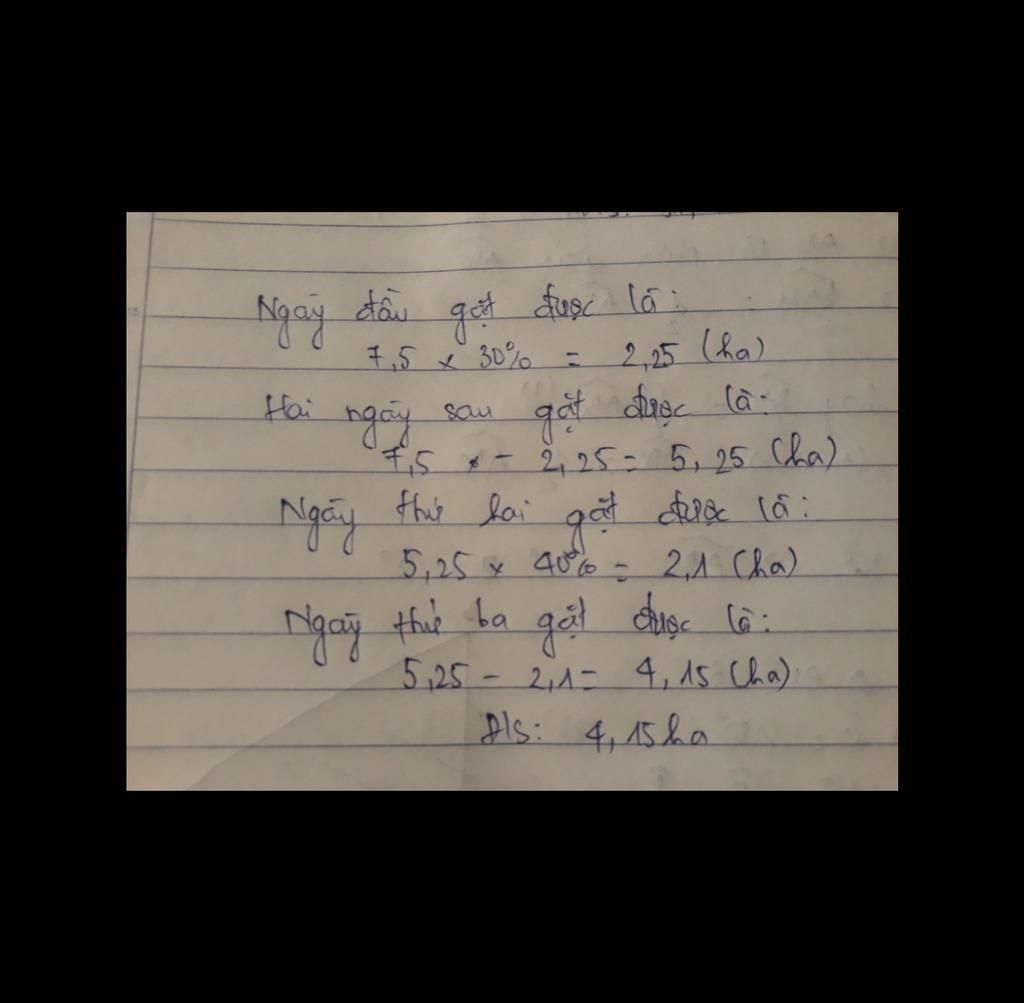 Ngày đầu gặt được là:
7,5 x 30% = 2,25 (ha)
Hai ngày sau gặt được là:
7,5 - 2,25 = 5,25 (ha)
Ngày thứ hai gặt được là:
5,25 x 40% = 2,1 (ha)
Ngày thứ ba gặt được là:
5,25 - 2,1 = 4,15 (ha)
Đ/S: 4,15 ha